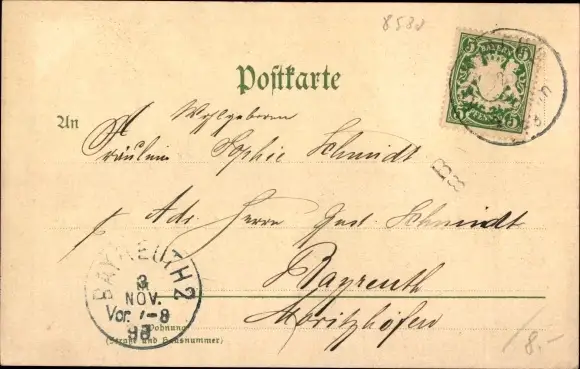 8588
5 BAYERN 5
5 PFENNIG 5
Postkarte
An
Wohlgeboren
Fräulein Sophie Schmidt
p. Adr. Herrn Gust. Schmidt
Bayreuth
Moritzhöfen
BAYREUTH 2
3
NOV.
Vor. 7-8
98
Wohnung
(Straße und Hausnummer)
8.-